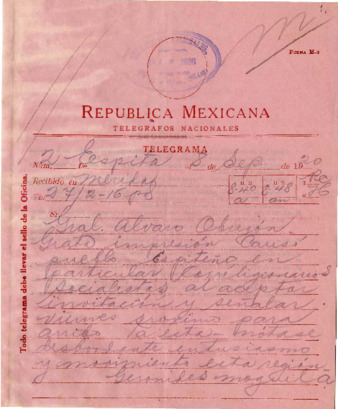 FORMA M-2
REPUBLICA MEXICANA
TELEGRAFOS NACIONALES
TELEGRAMA
Núm. 2 De Espita 8 de Sep. de 1920
Recibido en Mérida
27/2-15.00
8.20 8.28
a am
Sr. Gral. Alvaro Obregón
Grata impresión causó
pueblo Espiteño en
particular Correligionarios
Socialistas al aceptar
invitación y señalar
viernes próximo para
arribo a esta notase
desbordante entusiasmo
y movimiento esta región
Todo telegrama debe llevar el sello de la Oficina.